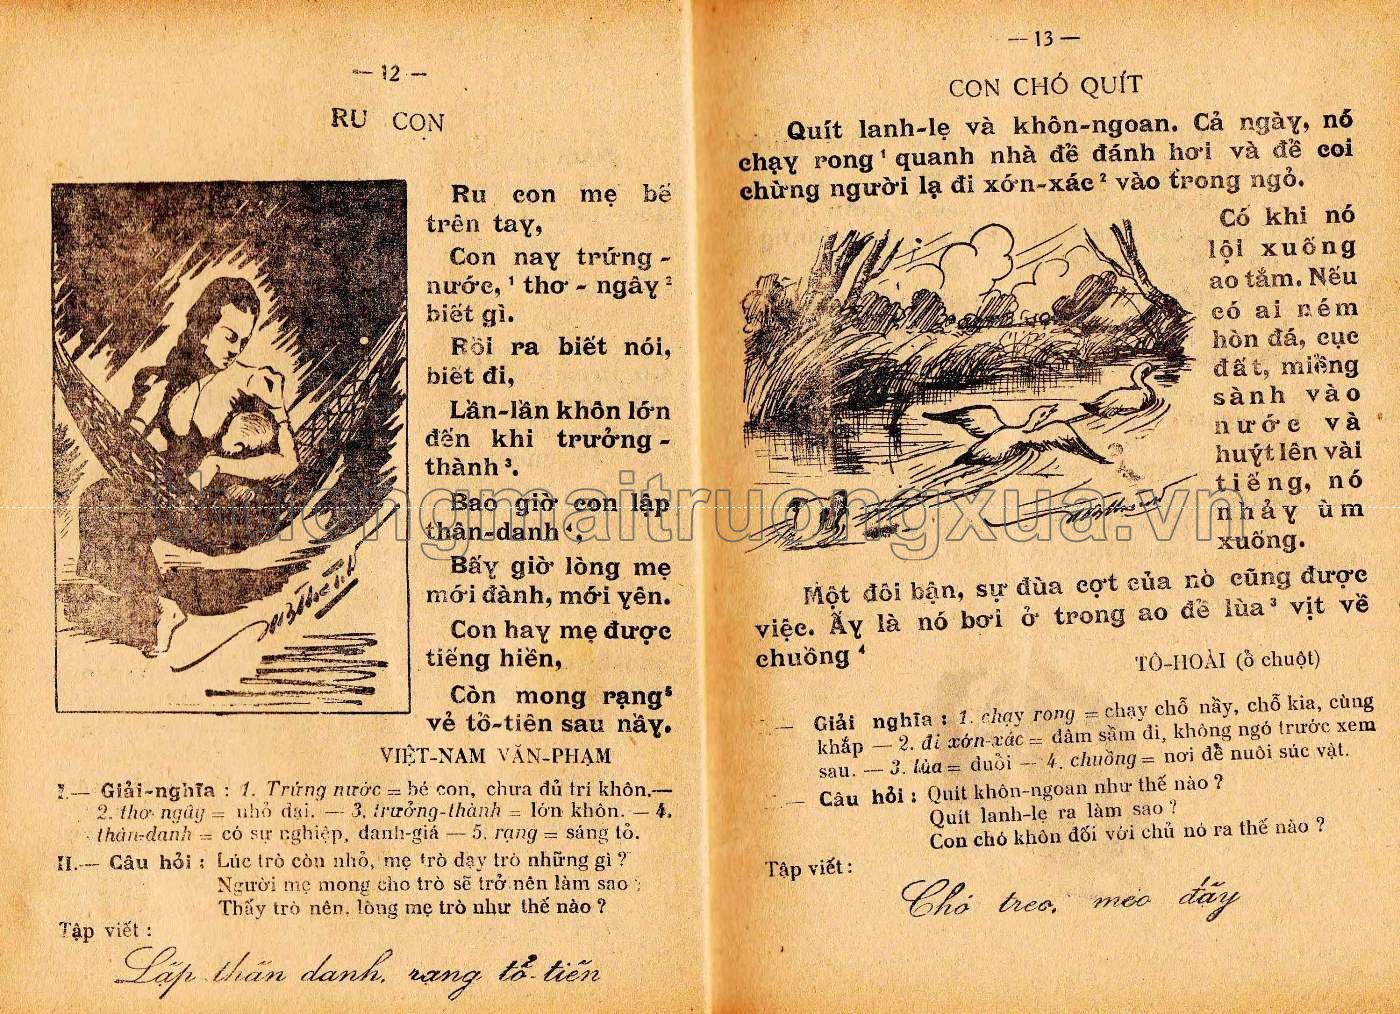 — 12 —
RU CON
Ru con mẹ bế
trên tay,
Con nay trứng -
nước, ¹ thơ - ngây ²
biết gì.
Rồi ra biết nói,
biết đi,
Lần-lần khôn lớn
đến khi trưởng -
thành ³.
Bao giờ con lập
thân-danh ⁴,
Bấy giờ lòng mẹ
mới đành, mới yên.
Con hay mẹ được
tiếng hiền,
Còn mong rạng⁵
vẻ tổ-tiên sau nầy.
VIỆT-NAM VĂN-PHẠM
I.— Giải-nghĩa : 1. Trứng nước = bé con, chưa đủ trí khôn.—
2. thơ ngây = nhỏ dại. — 3. trưởng-thành = lớn khôn. — 4.
thân-danh = có sự nghiệp, danh-giá — 5. rạng = sáng tỏ.
II.— Câu hỏi : Lúc trò còn nhỏ, mẹ trò dạy trò những gì ?
Người mẹ mong cho trò sẽ trở nên làm sao ?
Thấy trò nên, lòng mẹ trò như thế nào ?
Tập viết :
Lập thân danh, rạng tổ-tiên
— 13 —
CON CHÓ QUÍT
Quít lanh-lẹ và khôn-ngoan. Cả ngày, nó
chạy rong ¹ quanh nhà để đánh hơi và để coi
chừng người lạ đi xớn-xác ² vào trong ngỏ.
Có khi nó
lội xuống
ao tắm. Nếu
có ai ném
hòn đá, cục
đất, miềng
sành vào
nước và
huýt lên vài
tiếng, nó
nhảy ùm
xuống.
Một đôi bận, sự đùa cợt của nò cũng được
việc. Ấy là nó bơi ở trong ao để lùa ³ vịt về
chuồng ⁴
TÔ-HOÀI (ồ chuột)
— Giải nghĩa : 1. chạy rong = chạy chỗ nầy, chỗ kia, cùng
khắp — 2. đi xớn-xác = đâm sầm đi, không ngó trước xem
sau. — 3. lùa = đuổi — 4. chuồng = nơi để nuôi súc vật.
— Câu hỏi : Quít khôn-ngoan như thế nào ?
Quít lanh-lẹ ra làm sao ?
Con chó khôn đối với chủ nó ra thế nào ?
Tập viết :
Chó treo, mèo đẩy
thuongmaitruongxua.vn